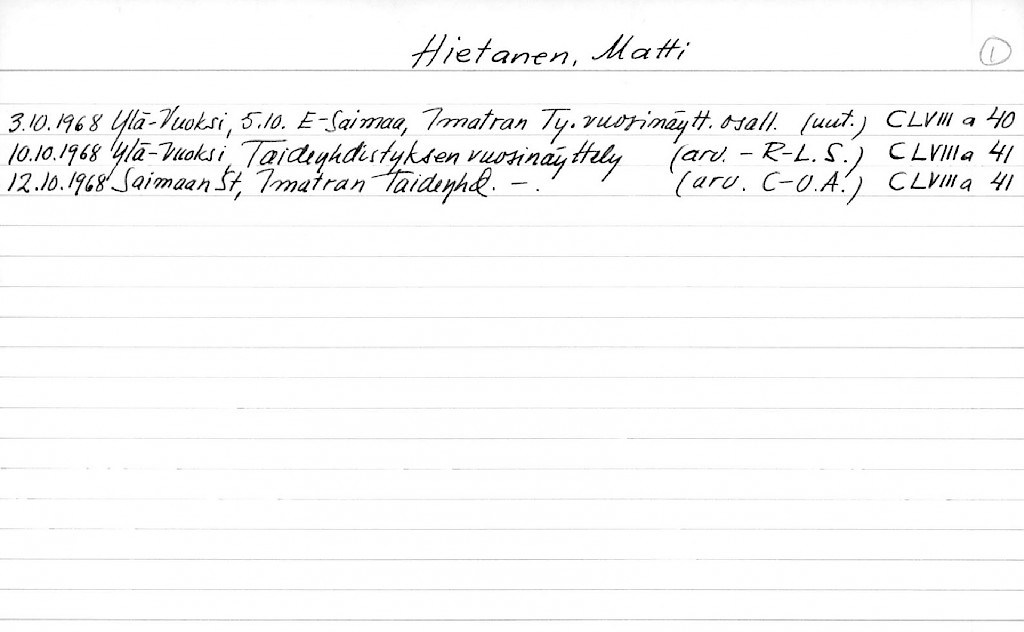 Hietanen, Matti 1
3.10.1968 Ylä-Vuoksi, 5.10. E-Saimaa, Imatran Ty. vuosinäytt. osall. (uut.) CLVIII a 40
10.10.1968 Ylä-Vuoksi, Taideyhdistyksen vuosinäyttely (arv. - R-L. S.) CLVIII a 41
12.10.1968 Saimaan St, Imatran Taideyhd. -. (arv. C-O.A.) CLVIII a 41